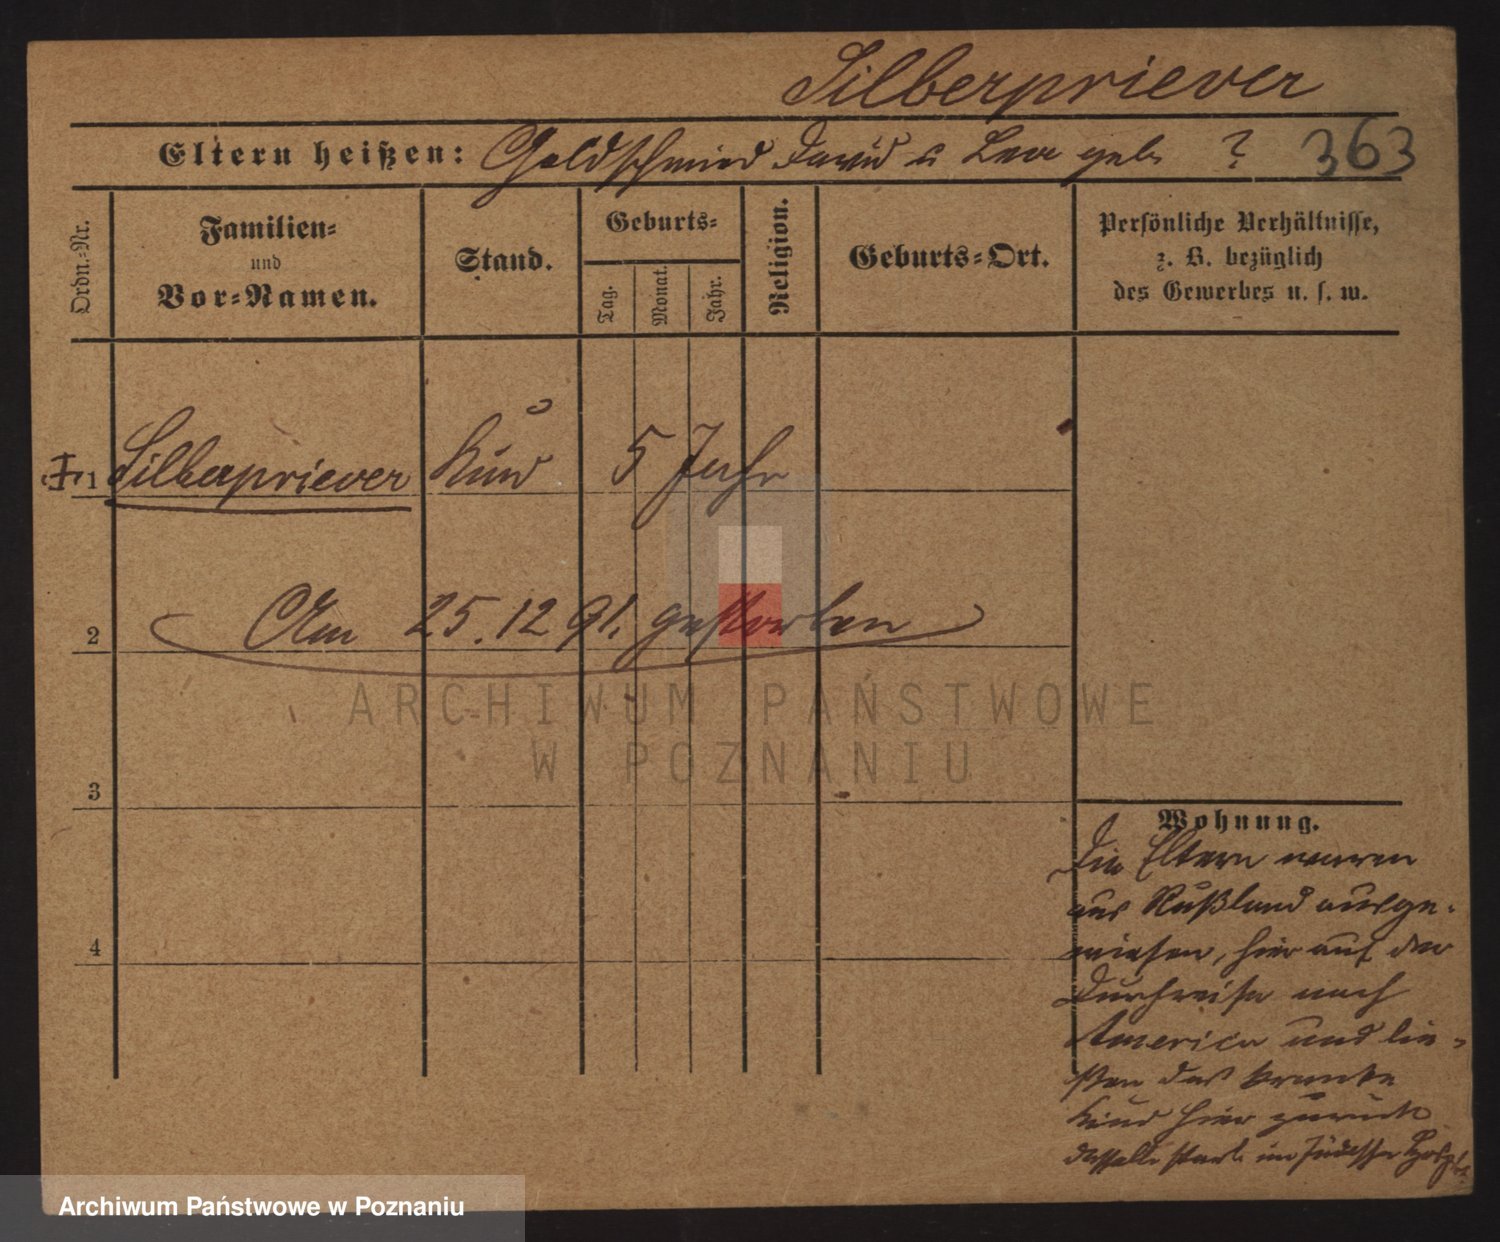 Silberpriever
Eltern heißen: Goldschmied David u Lea geb. ? 363
Ordn.-Nr.
Familien-
und
Vor-Namen.
Stand.
Geburts-
Tag.
Monat.
Jahr.
Religion.
Geburts-Ort.
Persönliche Verhältnisse,
z. B. bezüglich
des Gewerbes u. s. w.
1 Silberpriever Kind 5 Jahr
2 Am 25.12 91. gestorben
3
4
Wohnung.
Die Eltern waren
aus Rußland ausge-
wiesen, hier auf der
Durchreise nach
America und lie-
ßen das kranke
Kind hier zurück
dasselbe starb im jüdischen
ARCHIWUM PAŃSTWOWE
W POZNANIU
Archiwum Państwowe w Poznaniu